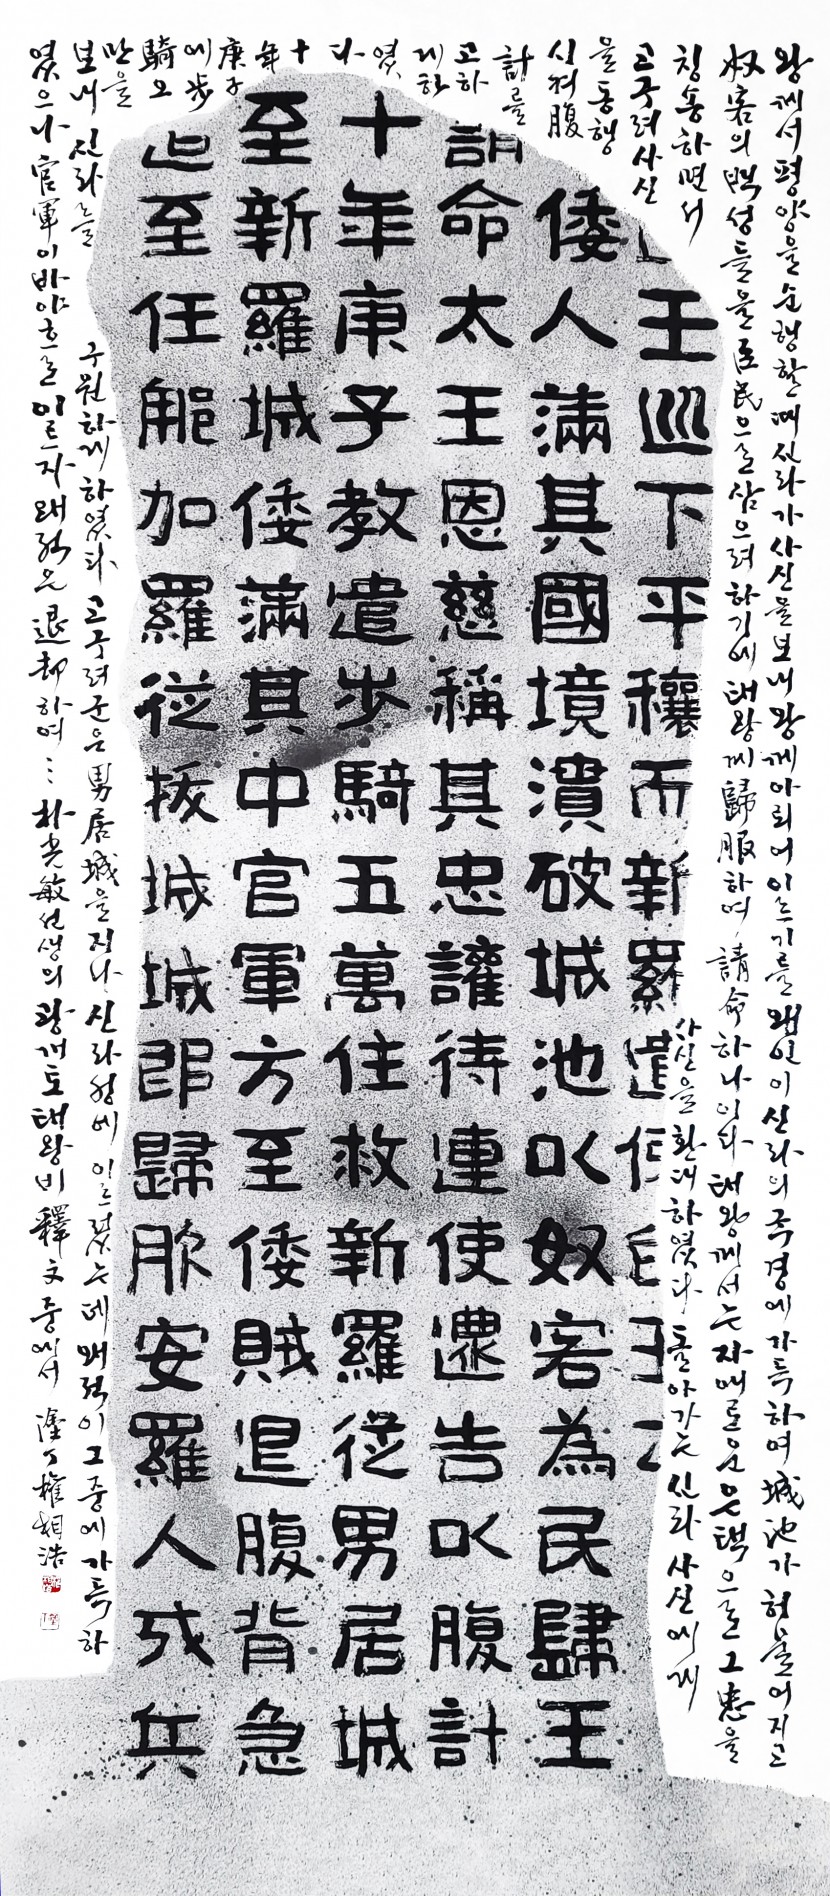 왕께서 평양을 순행할 때 신라가 사신을 보내 왕께 아뢰어 이르기를 왜인이 신라의 국경에 가득하여 城池가 허물어지고
奴客의 백성들을 臣民으로 삼으려 하기에 태왕께 歸服하여 請命하나이다 태왕께서는 자애로운 은택으로 그 忠을
칭송하면서
사신을 환대하였다 돌아가는 신라 사신에게
고구려 사신
을 동행
시켜 腹
計를
고하
게 하
였
다
十
年
庚子
에 步
騎 五
만을
보내 신라를
구원하게 하였다 고구려군은 男居城을 지나 신라성에 이르렀는데 왜적이 그 중에 가득하
였으나 官軍이 바야흐로 이르자 왜적은 退却하여… 朴光敏선생의 광개토태왕비 釋文 중에서 塗丁 權相浩
王巡下平穰而新羅遣使白王云
倭人滿其國境潰破城池以奴客為民歸王
請命太王恩慈稱其忠讙待連使還告以腹計
十年庚子教遣步騎五萬住救新羅從男居城
至新羅城倭滿其中官軍方至倭賊退腹背急
追至任那加羅從拔城城即歸服安羅人戍兵